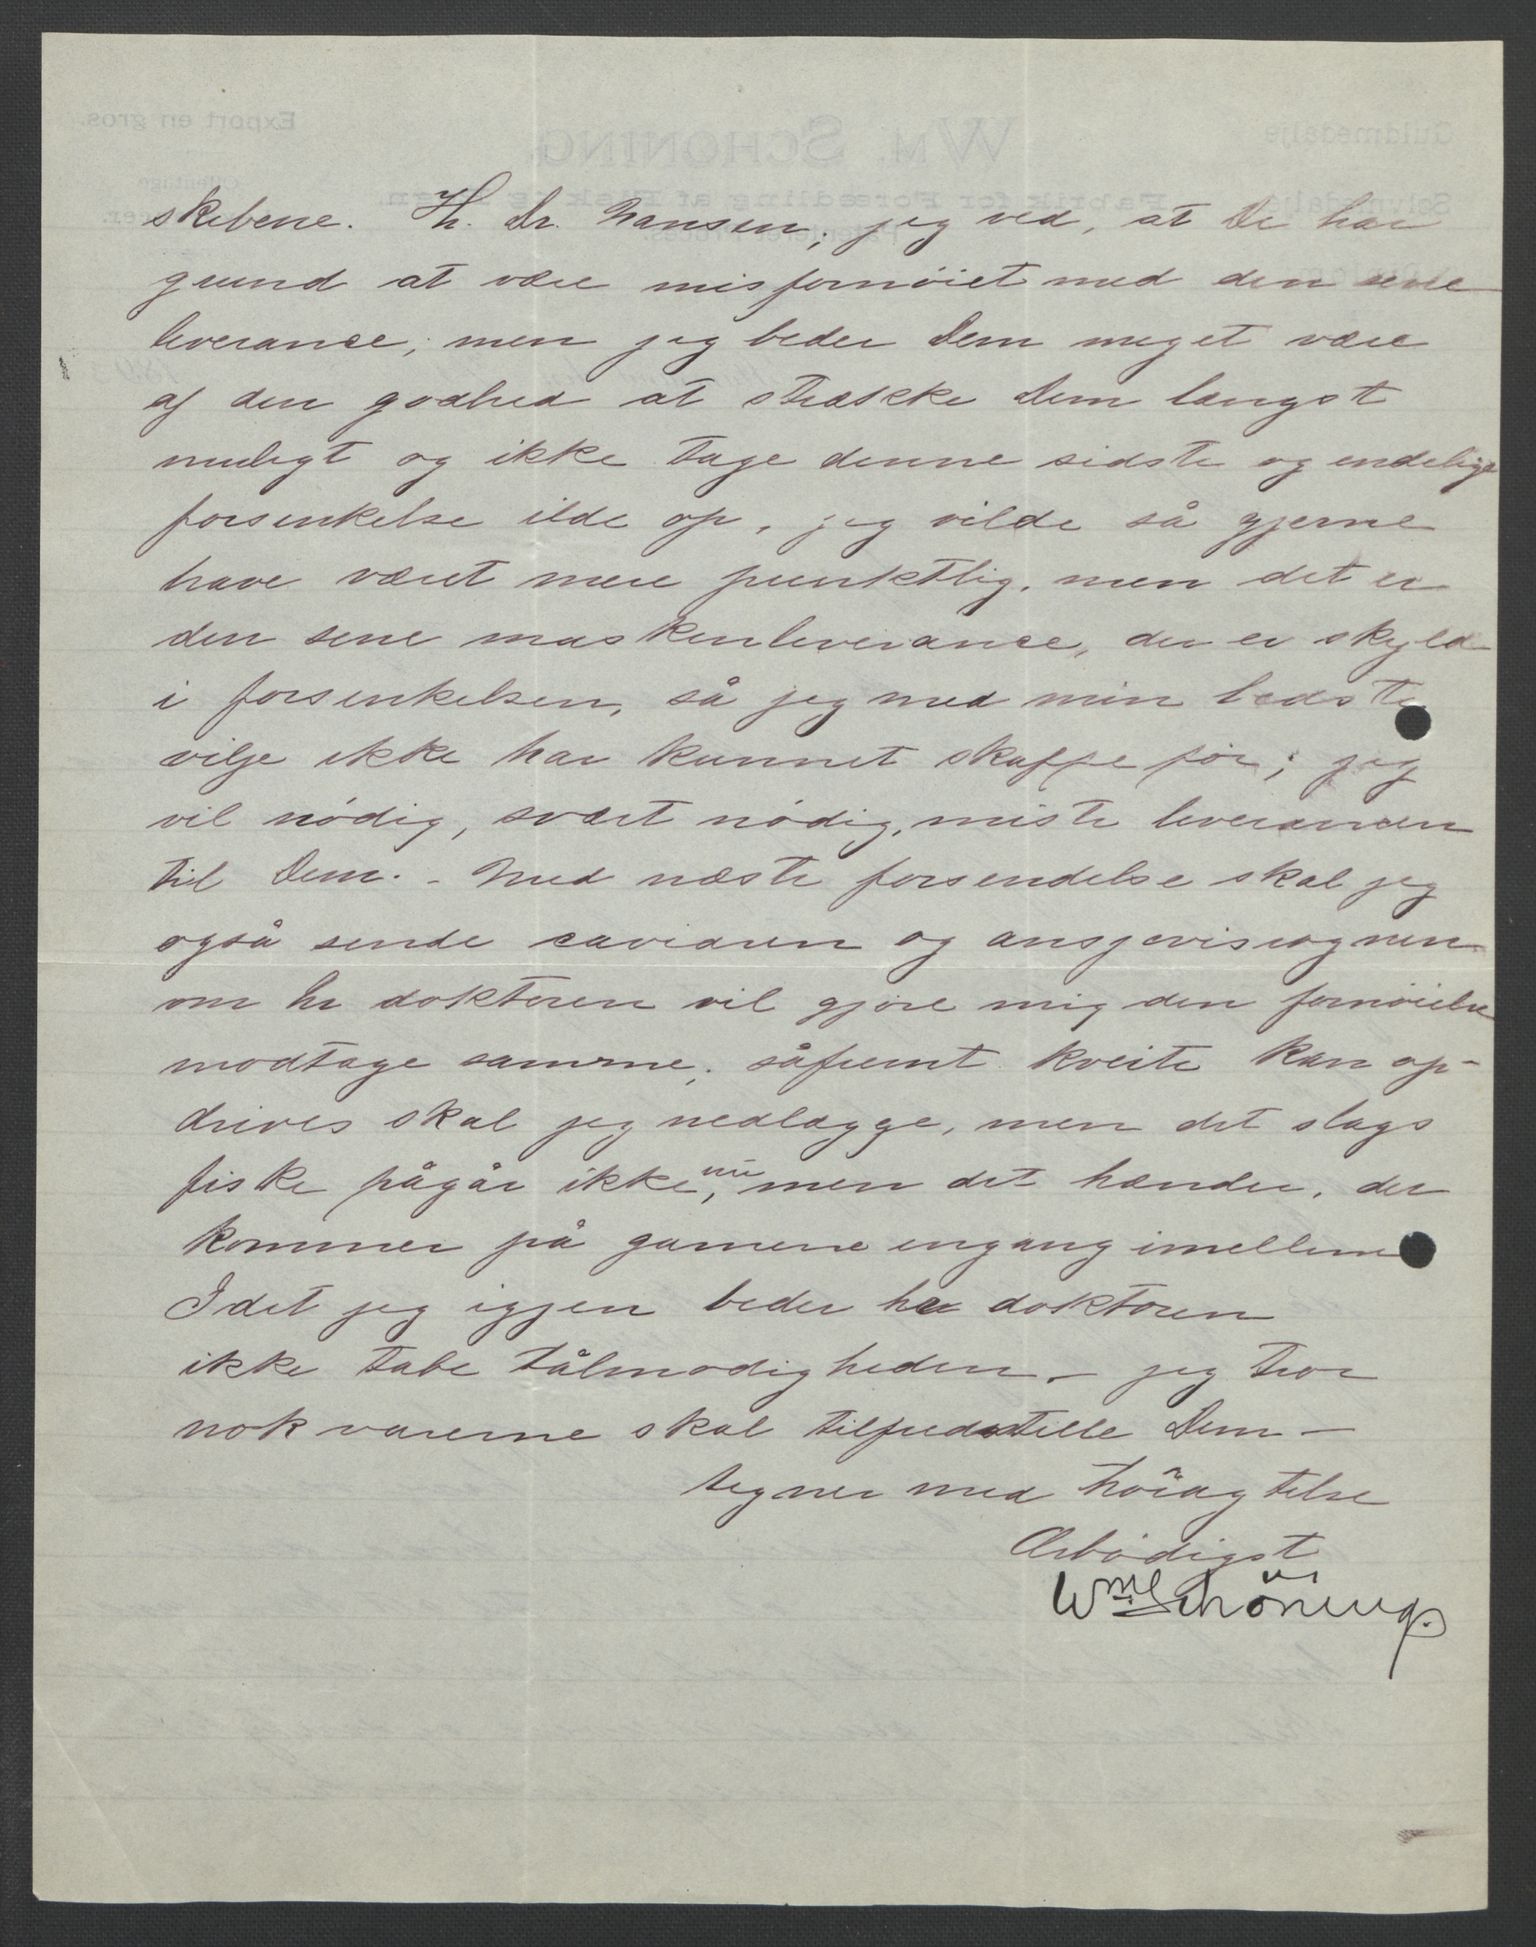 skibene. H. Dr. Nansen; jeg ved, at De har
grund at være misfornöiet med den sene
leverance; men jeg beder Dem meget være
af den godhed at strække Dem længst
muligt og ikke tage denne sidste og endelige
forsinkelse ilde op, jeg vilde så gjerne
have været mere punktlig, men det er
den sene maskinleverance, der er skyld
i forsinkelsen, så jeg med min bedste
vilje ikke har kunnet skaffe för; jeg
vil nödig, svært nödig, miste leverancen
til Dem. - Med næste forsendelse skal jeg
også sende caviaren og ansjovisrognen
om hr doktoren vil gjöre mig den fornöielse
modtage samme; såfremt kveite kan op-
drives skal jeg nedlægge, men det slags
fiske pågår ikke nu, men det hænder, der
kommer på garnene engang imellem
Idet jeg igjen beder hr doktoren
ikke tabe tålmodigheden - jeg tror
nok varerne skal tilfredsstille Dem -
tegner med höiagtelse
Ærbödigst
Wm Schöning.
WM. SCHÖNING.
Fabrik for Forædling af Fisk og Rogn.
Export en gros.
Guldmedalje
Sølvmedalje